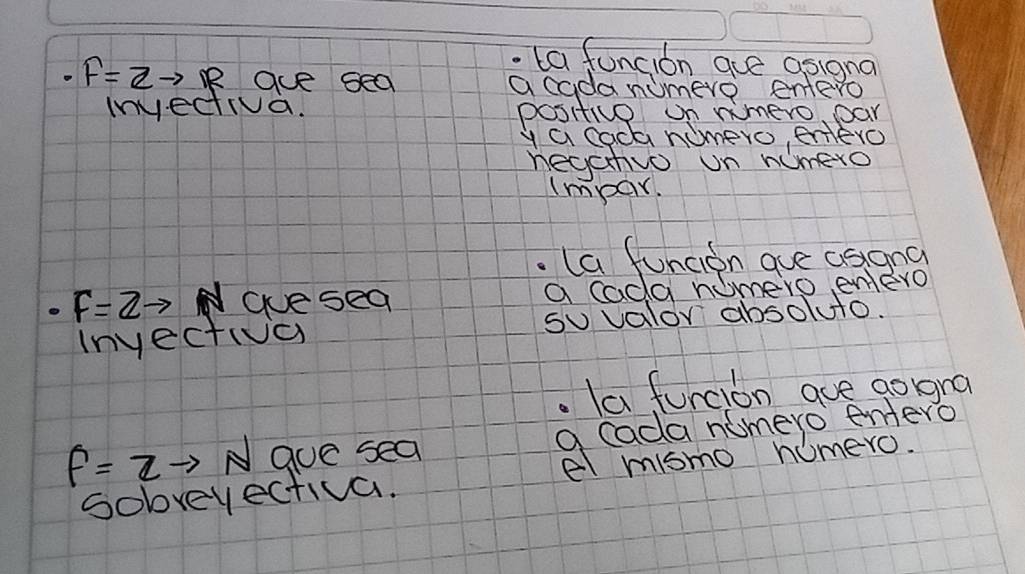 • F=Z→ R que sea
inyectiva.
• la función que asigna
a cada número entero
positivo un número par
y a cada número entero
negativo un número
impar.
• F=Z→ N que sea
inyectiva
• la función que asigna
a cada número entero
su valor absoluto.
f=Z→ N que sea
sobreyectiva.
• la función que asigna
a cada número entero
el mismo número.